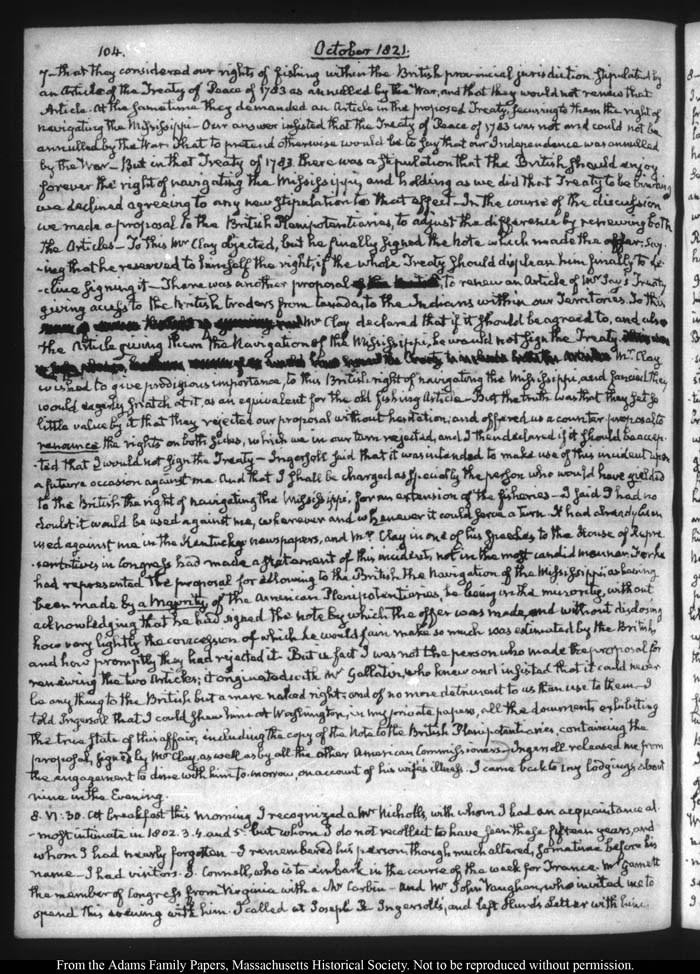 104. October 1821.
7 - that they considered our rights of fishing within the British provincial jurisdiction stipulated by
an Article of the Treaty of Peace of 1783 as annulled by the War, and that they would not renew that
Article. At the same time they demanded an Article in the proposed Treaty, securing to them the right of
navigating the Mississippi - Our answer insisted that the Treaty of Peace of 1783 was not and could not be
annulled by the War. That to pretend otherwise would be to say that our Independence was annulled
by the War - But in that Treaty of 1783 there was a stipulation that the British should enjoy
forever the right of navigating the Mississippi, and holding as we did that Treaty to be binding
we declined agreeing to any new stipulation to that effect - In the course of the discussion
we made a proposal to the British Plenipotentiaries, to adjust the difference by renewing both
the Articles - To this Mr Clay objected, but he finally signed the note which made the offer; say-
-ing that he reserved to himself the right, if the whole Treaty should displease him finally to de-
-cline signing it - There was another proposal to renew an Article of Mr Jay's Treaty
giving access to the British traders from Canada, to the Indians within our Territories. To this
Mr Clay declared that if it should be agreed to, and also
the Article giving them the Navigation of the Mississippi, he would not sign the Treaty.
Mr Clay
wished to give prodigious importance, to this British right of navigating the Mississippi, and fancied they
would eagerly snatch at it, as an equivalent for the old fishing Article - But the truth was that they set so
little value by it that they rejected our proposal without hesitation, and offered us a counter proposal to
renounce the rights on both sides, which we in our turn rejected, and I then declared if it should be accep-
-ted that I would not sign the Treaty - Ingersoll said that it was intended to make use of this incident upon
a future occasion against me. And that I shall be charged as specially the person who would have yielded
to the British the right of navigating the Mississippi, for an extension of the fisheries - I said I had no
doubt it would be used against me, wherever and whenever it could serve a turn. It had already been
used against me in the Kentucky newspapers, and Mr Clay in one of his Speeches to the House of Repre-
-sentatives in Congress had made a statement of this incident, not in the most candid manner. For he
had represented the proposal for allowing to the British the navigation of the Mississippi as having
been made by a Majority of the American Plenipotentiaries, he being in the minority, without
acknowledging that he had signed the note by which the offer was made, and without disclosing
how very lightly the concession of which he would fain make so much was estimated by the British,
and how promptly they had rejected it. But in fact I was not the person who made the proposal for
renewing the two Articles; it originated with Mr Gallatin, who knew and insisted that it could never
be any thing to the British but a mere naked right; and of no more detriment to us than use to them. I
told Ingersoll that I could shew him at Washington, in my private papers, all the documents exhibiting
the true state of this affair; including the copy of the Note to the British Plenipotentiaries, containing the
proposal, signed by Mr Clay, as well as by all the other American Commissioners. Ingersoll released me from
the engagement to dine with him to-morrow on account of his wife's illness. I came back to my lodgings about
nine in the Evening.
8. VI:30. At breakfast this morning I recognized a Mr Nicholls, with whom I had an acquaintance al-
-most intimate in 1802. 3. 4. and 5. but whom I do not recollect to have seen these fifteen years, and
whom I had nearly forgotten - I remembered his person, though much altered, sometime before his
name - I had visitors. J. Connell, who is to embark in the course of the week for France. Mr Garnett
the member of Congress from Virginia with a Mr Corbin - and Mr John Vaughan, who invited me to
spend this evening with him. I called at Joseph R Ingersoll's, and left Hurd's Letter with him.
From the Adams Family Papers, Massachusetts Historical Society. Not to be reproduced without permission.